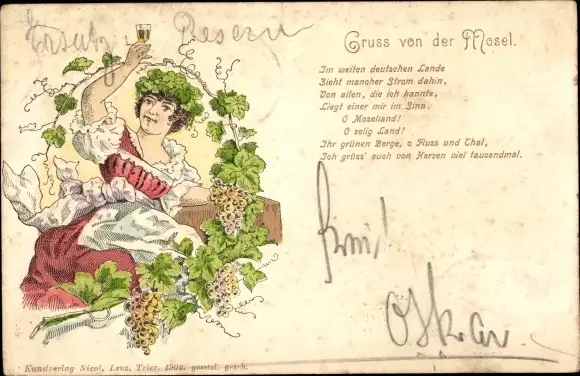 Gruss von der Mosel.
Im weiten deutschen Lande
Zieht mancher Strom dahin,
Von allen, die ich kannte,
Liegt einer mir im Sinn,
O Moselland!
O selig Land!
Ihr grünen Berge, o Fluss und Thal,
Ich grüss' euch von Herzen viel tausendmal.
Oskar.
Kunstverlag Nicol. Lenz, Trier. 1902. gesetzl. gesch.